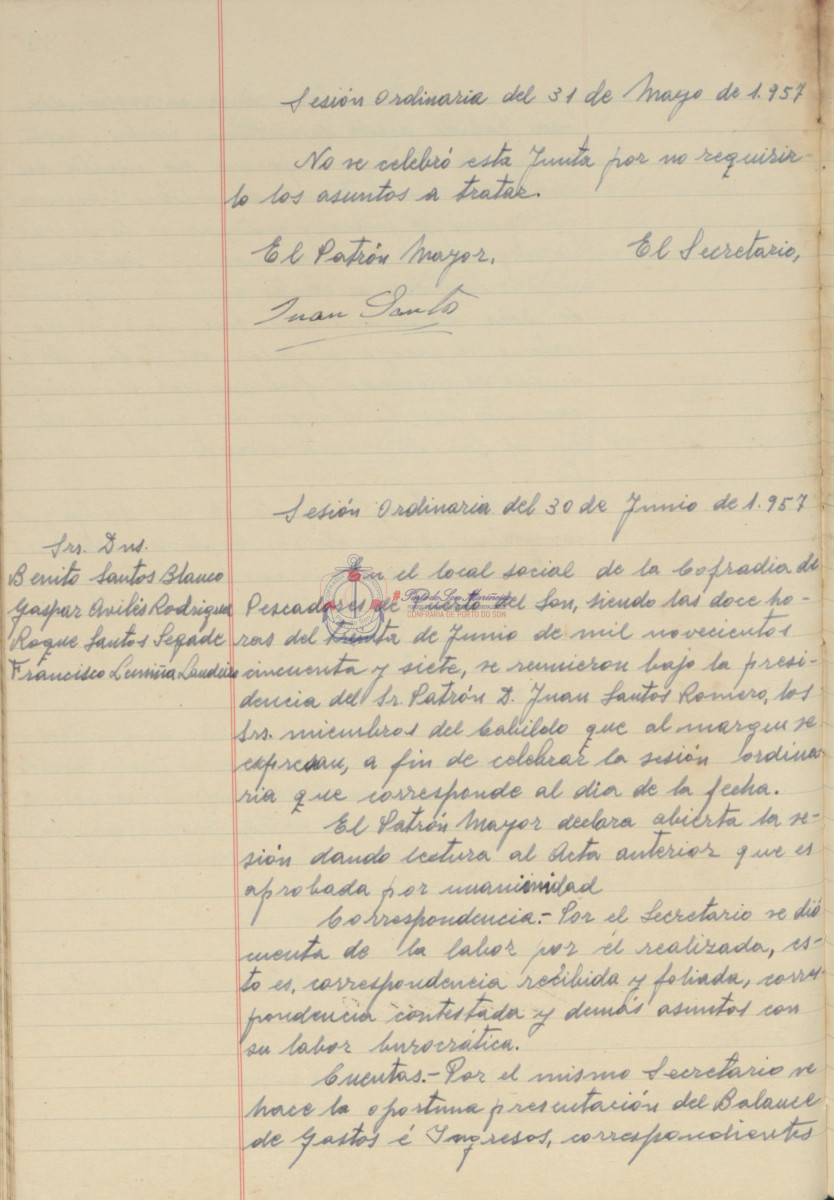 Sesión Ordinaria del 31 de Mayo de 1.957
No se celebró esta Junta por no requirir-
lo los asuntos a tratar.
El Patrón Mayor. El Secretario,
Juan Santos
Sesión Ordinaria del 30 de Junio de 1.957
Srs. Dns.
Benito Santos Blanco
Gaspar Avilés Rodriguez
Roque Santos Segade
Francisco
En el local social de la Cofradia de
Pescadores de Puerto del Son, siendo las doce ho-
ras del treinta de Junio de mil novecientos
cincuenta y siete, se reunieron bajo la presi-
dencia del Sr. Patrón D. Juan Santos Romero, los
Srs. miembros del Cabildo que al margen se
expresan, a fin de celebrar la sesión ordina-
ria que corresponde al dia de la fecha.
El Patrón Mayor declara abierta la se-
sión dando lectura al Acta anterior que es
aprobada por unanimidad
Correspondencia.- Por el Secretario se dió
cuenta de la labor por él realizada, es-
to es, correspondencia recibida y foliada, corres-
pondencia contestada y demás asuntos con
su labor burocrática.
Cuentas.- Por el mismo Secretario se
hace la oportuna presentación del Balance
de Gastos é Ingresos, correspondientes
CONFRARÍA DE PORTO DO SON